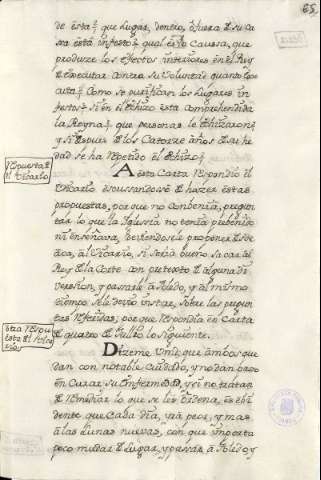 65,
de esta q̃ que Lugar, dentro, ò fuera de su Ca
sa està infesto: q̃ qual es la Caussa, que
produce los efectos interiores en el Rey
de executar contra su Voluntad quanto
Como se purifican los Lugares in
festos: Si en el Echizo esta comprehendida
la Reyna: q̃ que personas le Echizaron:
y si despues de los Catorce años de su he
dad se ha repetido el Echizo:
Respuesta de
el Vicario
A esta Carta Respondio el
Vicario escussandose de hazer estas
propuestas, por que no Combenia, pregun
tar lo que la Iglessia no tenia prebenido
ni enseñava, deviendosele proponer
al Vicario, si seria bueno sacar al
Rey de la Corte con pretexto de alguna di
version, y passarle a Toledo, y al mismo
tiempo se le devia instar, sobre las pregun
tas referidas; por que Respondia en Carta
de quatro de Jullio lo siguiente.
otra Respu
esta de el Vica
rio
Dizeme Vmd. que ambos que
dan con notable Cuidado, y no dan passo
en Curar su Enfermedad, y si no tratan
de Remediar lo que se les ordena, es ebi
dente que Cada dia, irà peor, y mas
a las Lunas nuevas, con que importa
poco mudar de Lugar, y passar a Toledo y